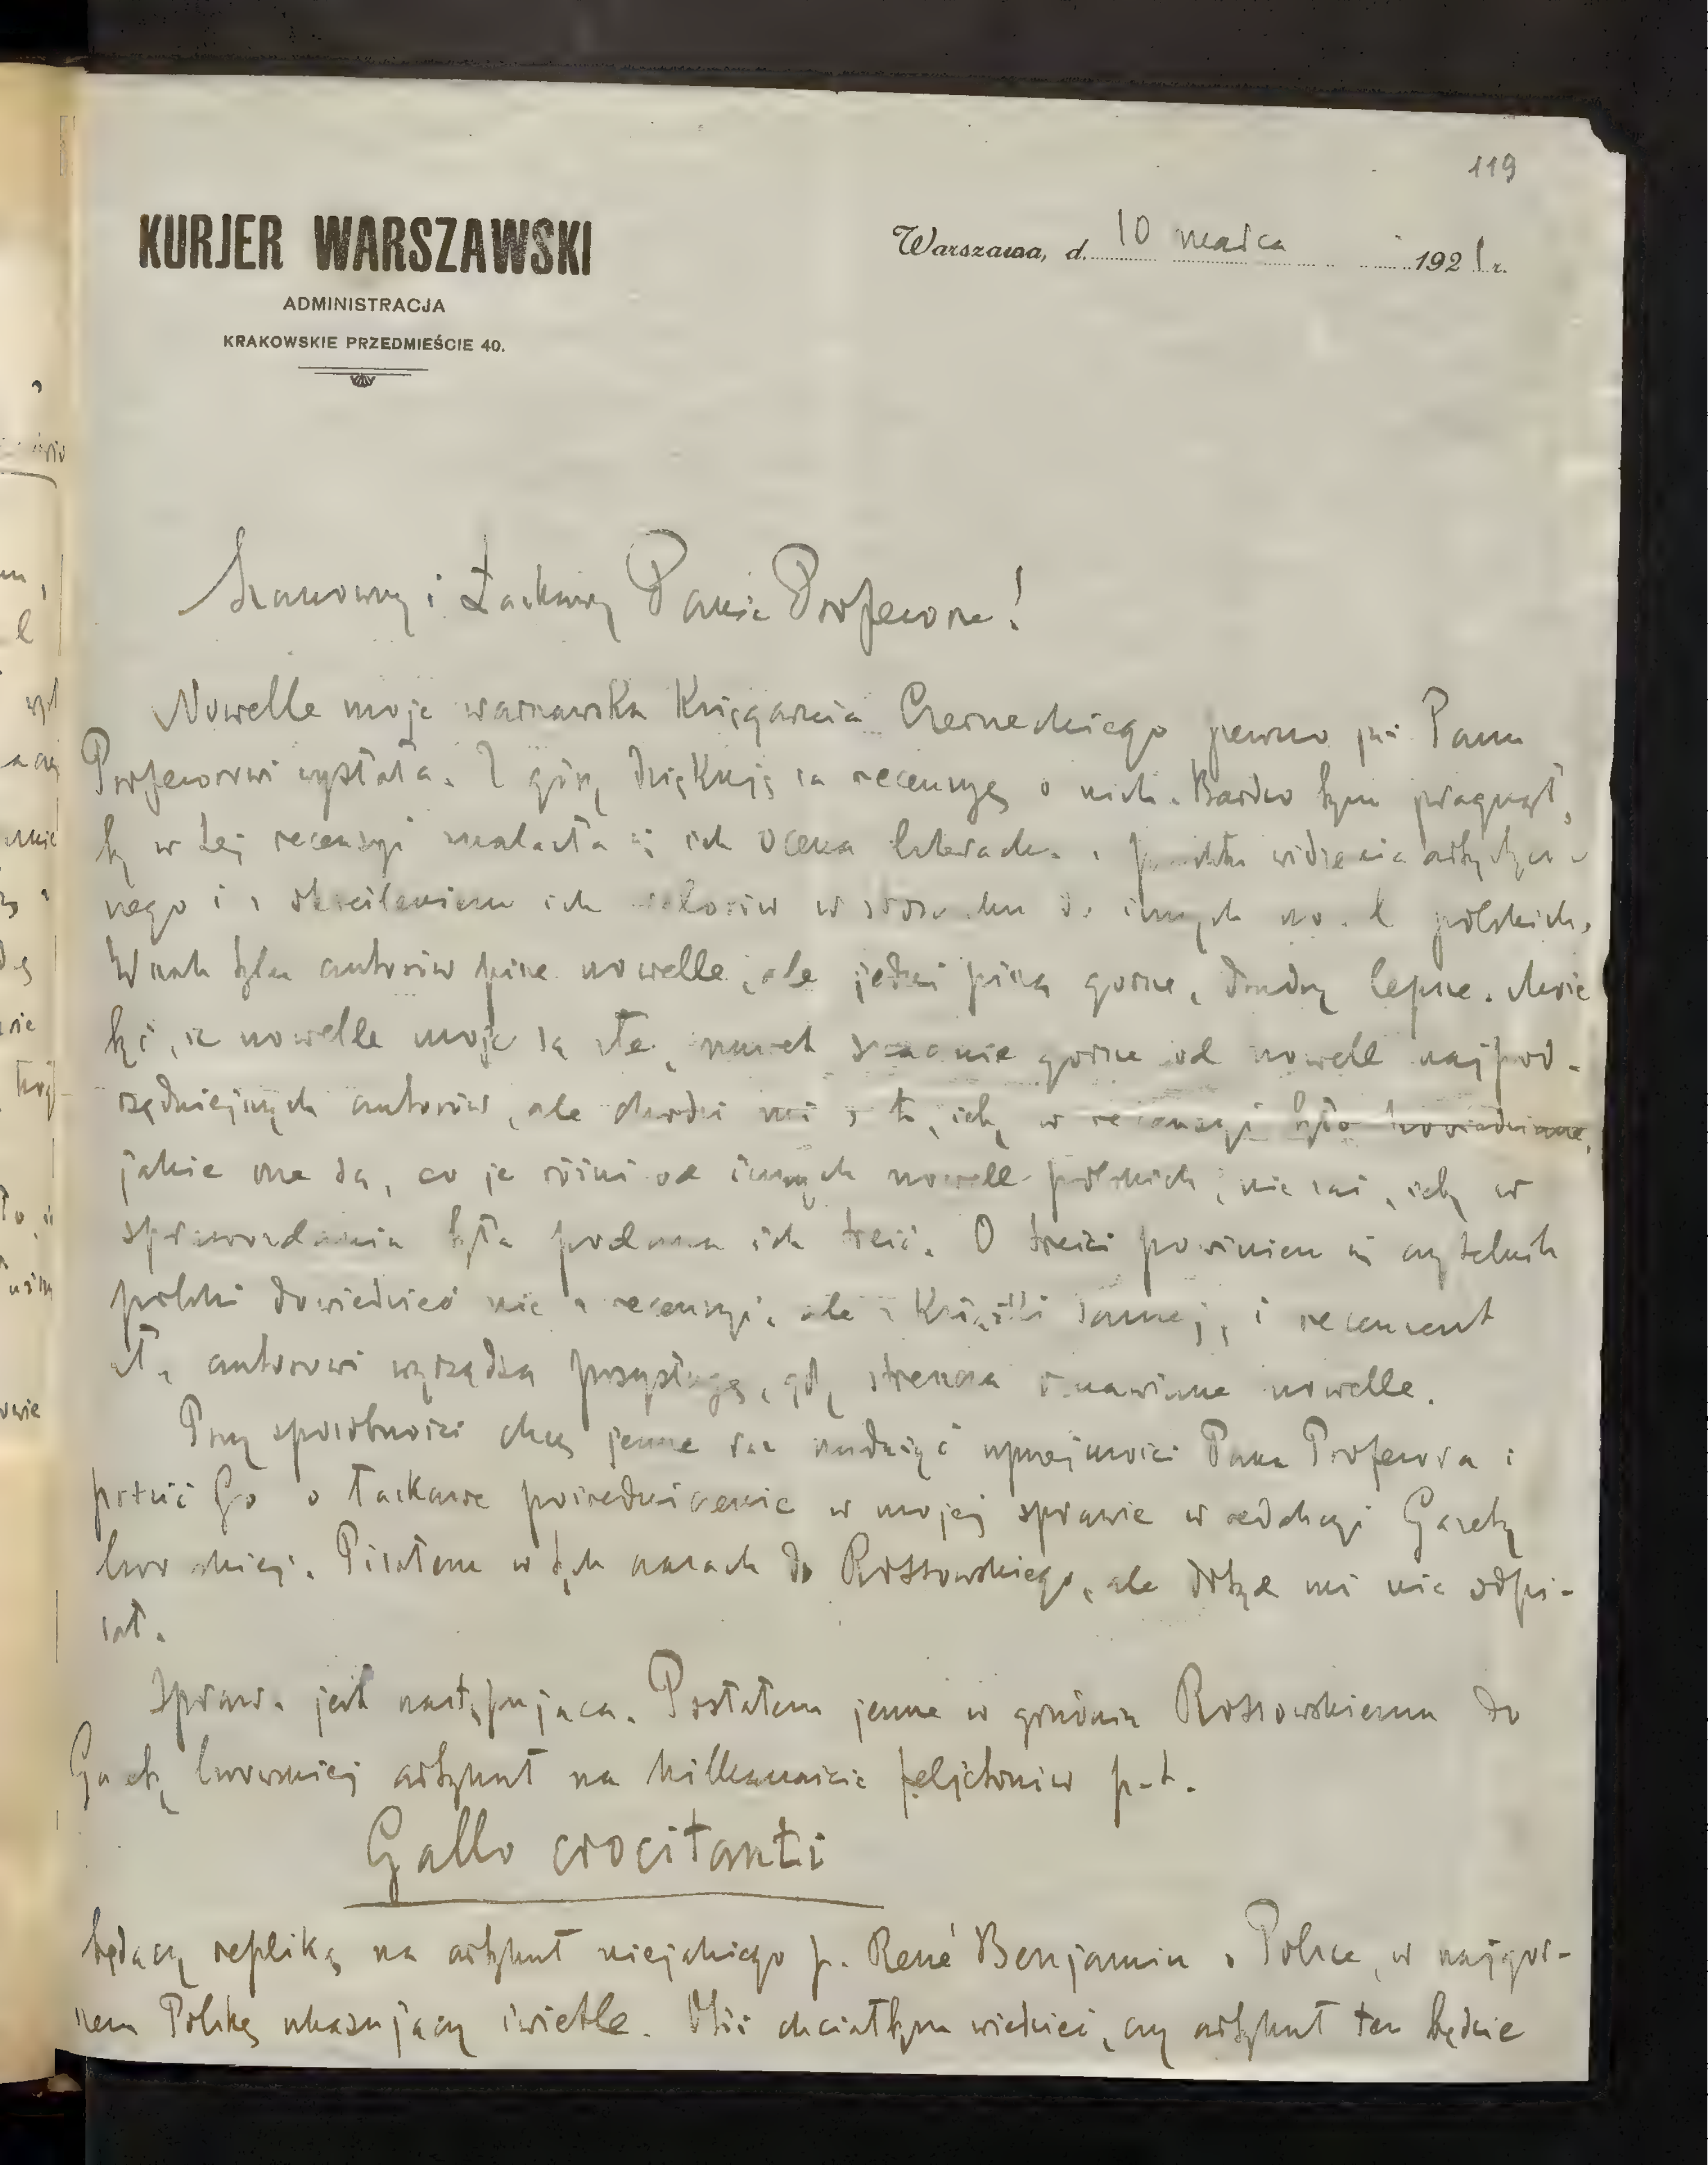 119
KURJER WARSZAWSKI
ADMINISTRACJA
KRAKOWSKIE PRZEDMIEŚCIE 40.
Warszawa, d. 10 marca 1921 r.
Szanowny i Łaskawy Panie Profesorze!
Nowelle moje warszawska Księgarnia Czerneckiego pewno już Panu
Profesorowi wysłała. Z góry dziękuję za recenzyę o nich. Bardzo bym pragnął,
by w tej recenzyi znalazła się ich ocena literacka z punktu widzenia artystycz-
nego i z określeniem ich walorów w stosunku do innych nowel polskich.
Wszak tylu autorów pisze nowelle, ale jedni piszą gorsze, drudzy lepsze. Może
być, że nowelle moje są złe, nawet znacznie gorsze od nowell najpod-
rzędniejszych autorów, ale chodzi mi o to, żeby w recenzyi było powiedziane,
jakie one są, co je różni od innych nowell polskich, nie zaś, żeby w
sprawozdaniu była podana ich treść. O treści powinien się czytelnik
polski dowiedzieć nie z recenzyi, ale z książki samej, i recenzent
złą autorowi wyrządza przysługę, gdy streszcza omawiane nowelle.
Przy sposobności chcę jeszcze raz nadużyć uprzejmości Pana Profesora i
prosić Go o łaskawe pośredniczenie w mojej sprawie w redakcyi Gazety
lwowskiej. Pisałem w tych czasach do Rossowskiego, ale dotąd mi nie odpi-
sał.
Sprawa jest następująca. Posłałem jeszcze w grudniu Rossowskiemu do
Gazety lwowskiej artykuł na kilkanaście feljetonów p.t.
Gallo crocitanti
będący repliką na artykuł niejakiego p. René Benjamin o Polsce, w najgor-
szem Polskę ukazujący świetle. Otóż chciałbym wiedzieć, czy artykuł ten będzie